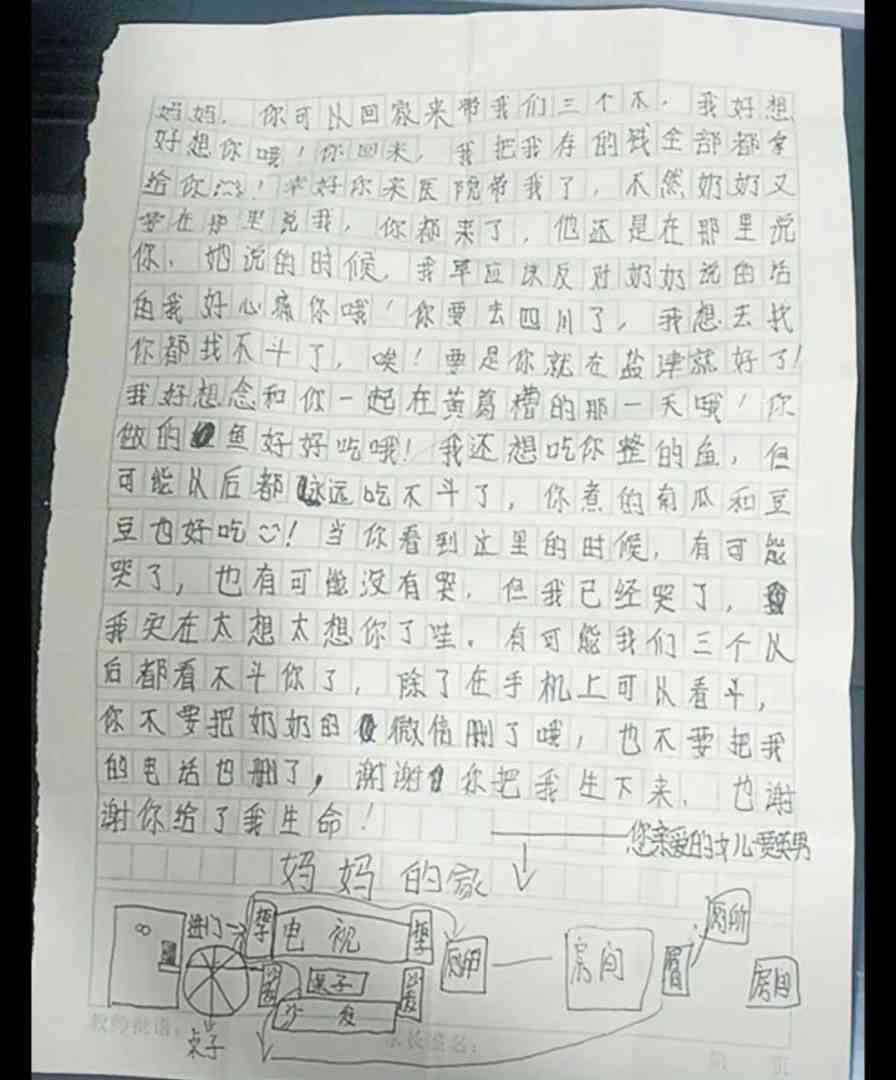 妈妈，你可以回家来带我们三个不，我好想
好想你哦！你回来，我把我存的钱全部都拿
给你！幸好你来医院带我了，不然奶奶又
要在那里说我，你都来了，他还是在那里说
你，她说的时候，我早应该反对奶奶说的话
的我好心痛你哦！你要去四川了，我想去找
你都找不斗了，唉！要是你就在盐津就好了！
我好想念和你一起在黄葛槽的那一天哦！你
做的鱼好好吃哦！我还想吃你整的鱼，但
可能以后都永远吃不斗了，你煮的南瓜和豆
豆也好吃！当你看到这里的时候，有可能
哭了，也有可能没有哭，但我已经哭了，
我实在太想太想你了哇。有可能我们三个以
后都看不斗你了，除了在手机上可以看斗，
你不要把奶奶的微信删了哦，也不要把我
的电话也删了，谢谢你把我生下来，也谢
谢你给了我生命！
您亲爱的女儿
妈妈的家
进门
柜子
电视
柜子
厕所
房间
厕所
房间
沙发
桌子
沙发
沙发
桌子
教师批语：
家长签名：
第 页